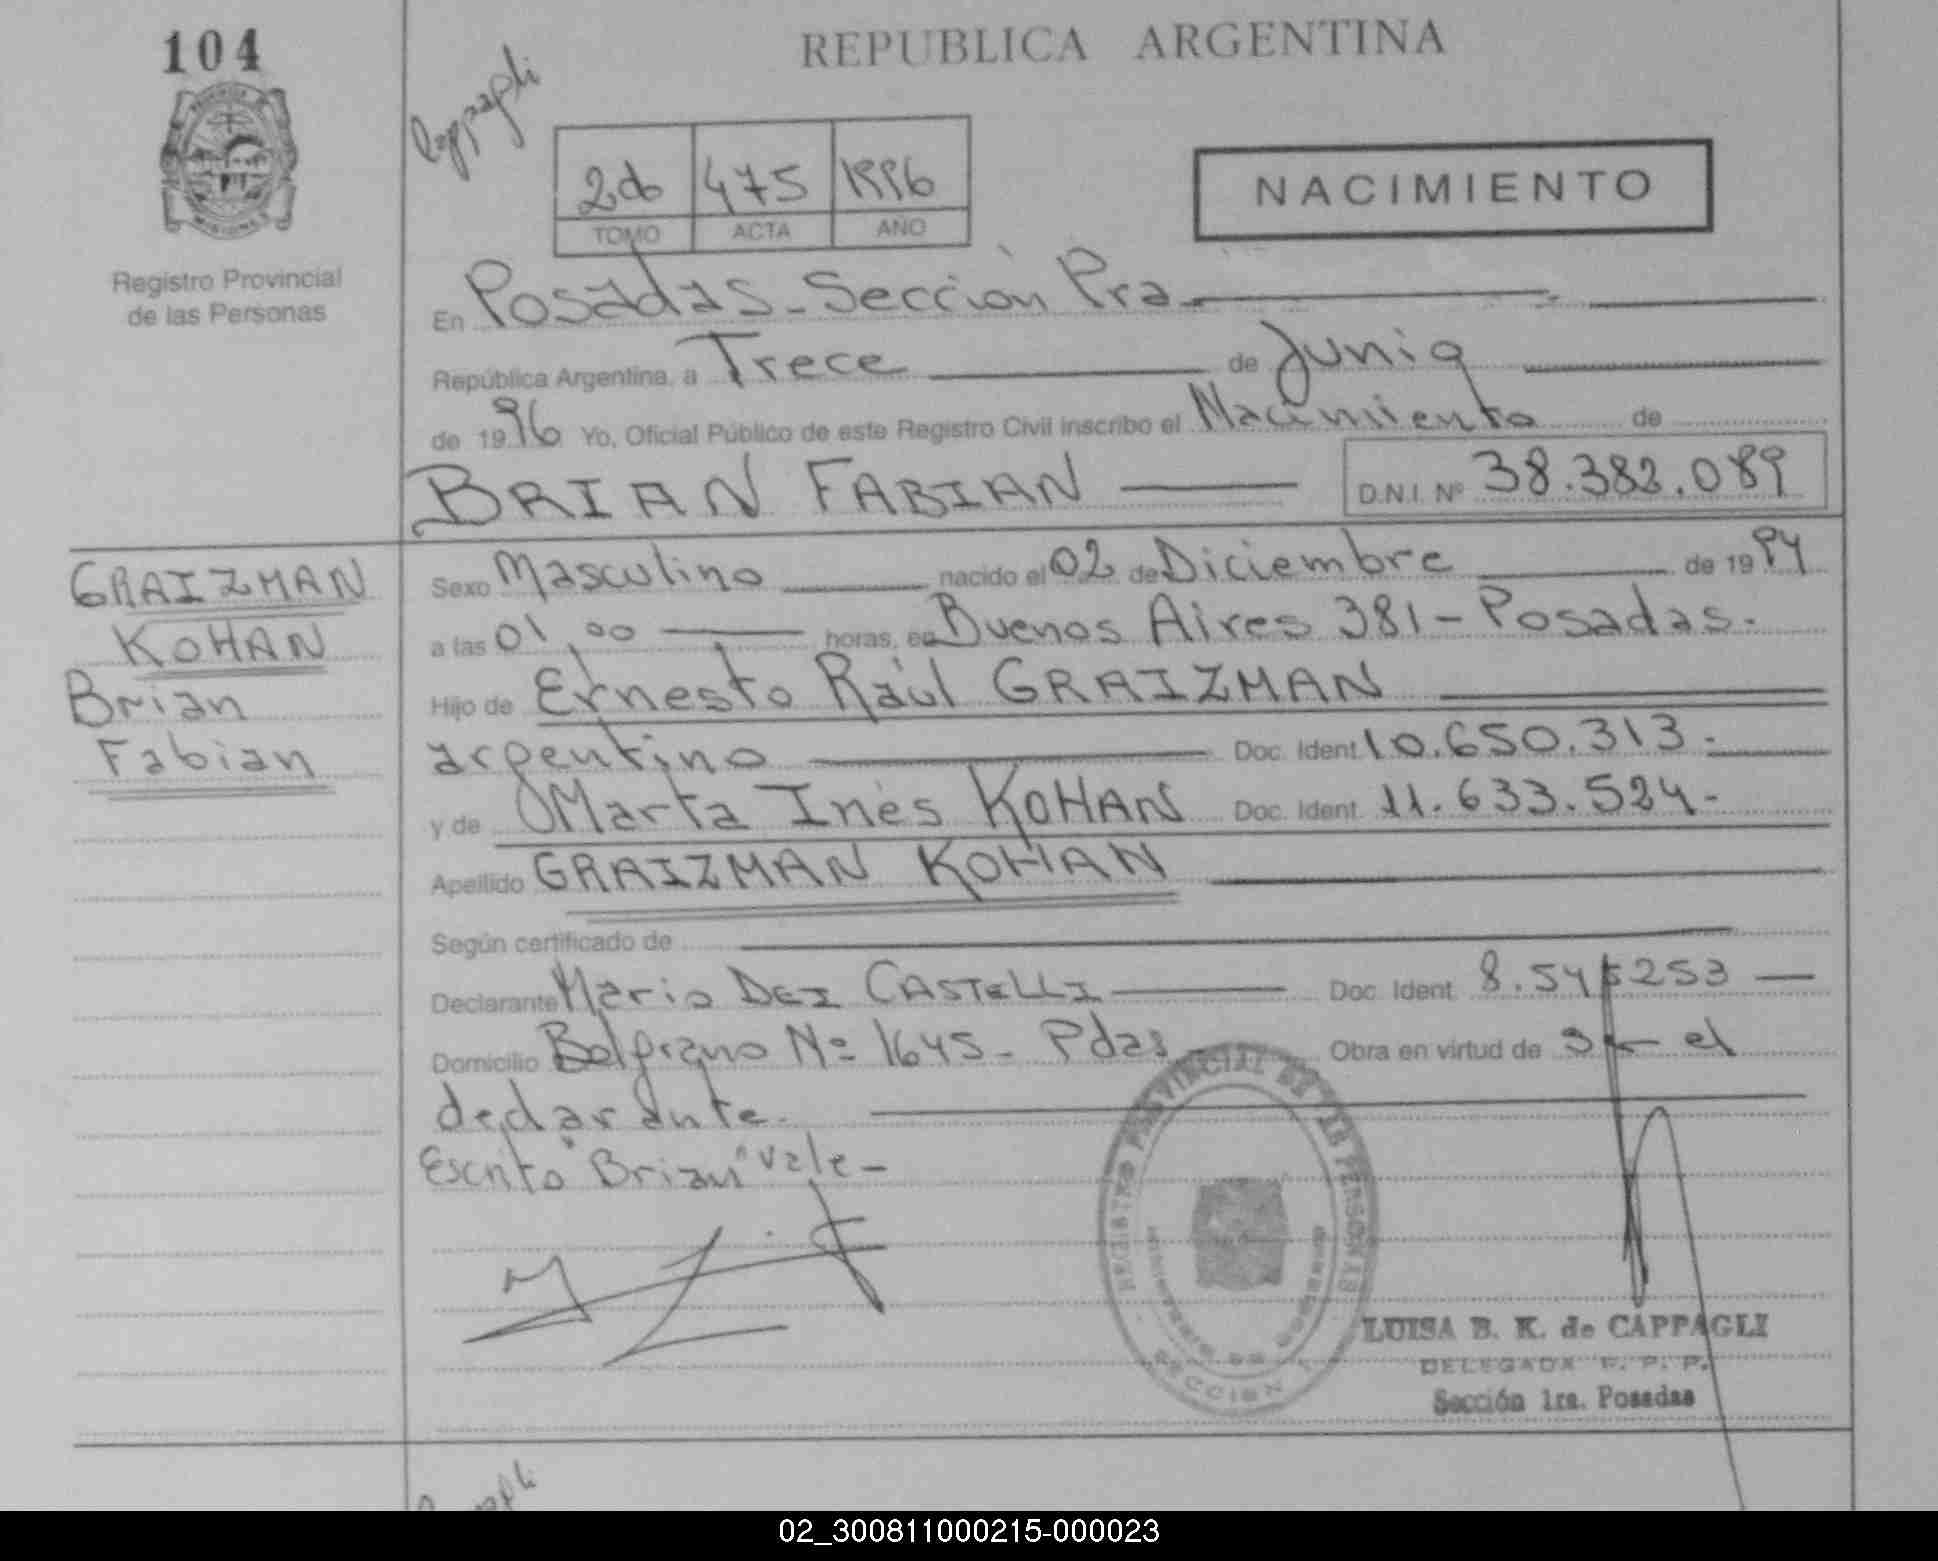 104
REPUBLICA ARGENTINA
Cappagli
2do 475 1996
TOMO ACTA AÑO
NACIMIENTO
Registro Provincial
de las Personas
En Posadas - Sección Pra
República Argentina, a Trece de Junio
de 1996 Yo, Oficial Público de este Registro Civil inscribo el Nacimiento de
BRIAN FABIAN D.N.I. Nº 38.382.089
GRAIZMAN
KOHAN
Brian
Fabian
Sexo Masculino nacido el 02 de Diciembre de 1994
a las 01,00 horas, en Buenos Aires 381 - Posadas.
Hijo de Ernesto Raúl GRAIZMAN
argentino Doc. Ident. 10.650.313.-
y de Marta Inés KOHAN Doc. Ident. 11.633.524-
Apellido GRAIZMAN KOHAN
Según certificado de
Declarante Mario DEI CASTELLI Doc. Ident. 8.545253
Domicilio Belgrano Nº 1645 - Pdas Obra en virtud de el
declarante.
Escrito "Brian" vale -
REGISTRO PROVINCIAL DE LAS PERSONAS
SECCION 1
LUISA B. K. de CAPPAGLI
DELEGADA R. P. P.
Sección 1ra. Posadas
02_300811000215-000023